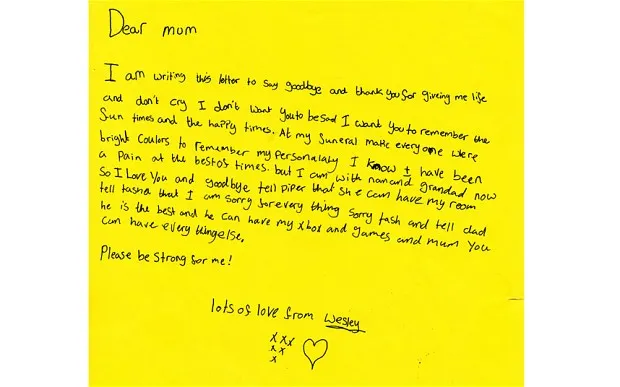 Dear mum
I am writing this letter to say goodbye and thank you for giveing me life
and don't cry I don't want you to be sad I want you to remember the
fun times and the happy times. At my funeral make everyone were
bright coulors to remember my personalaty I know I have been
a pain at the best of times. but I am with nan and grandad now
So I Love You and goodbye tell piper that she can have my room
tell tasha that I am sorry for every thing sorry tash and tell dad
he is the best and he can have my xbox and games and mum you
can have every thing else.
Please be strong for me!
lots of love from Wesley
x x x
x x
x